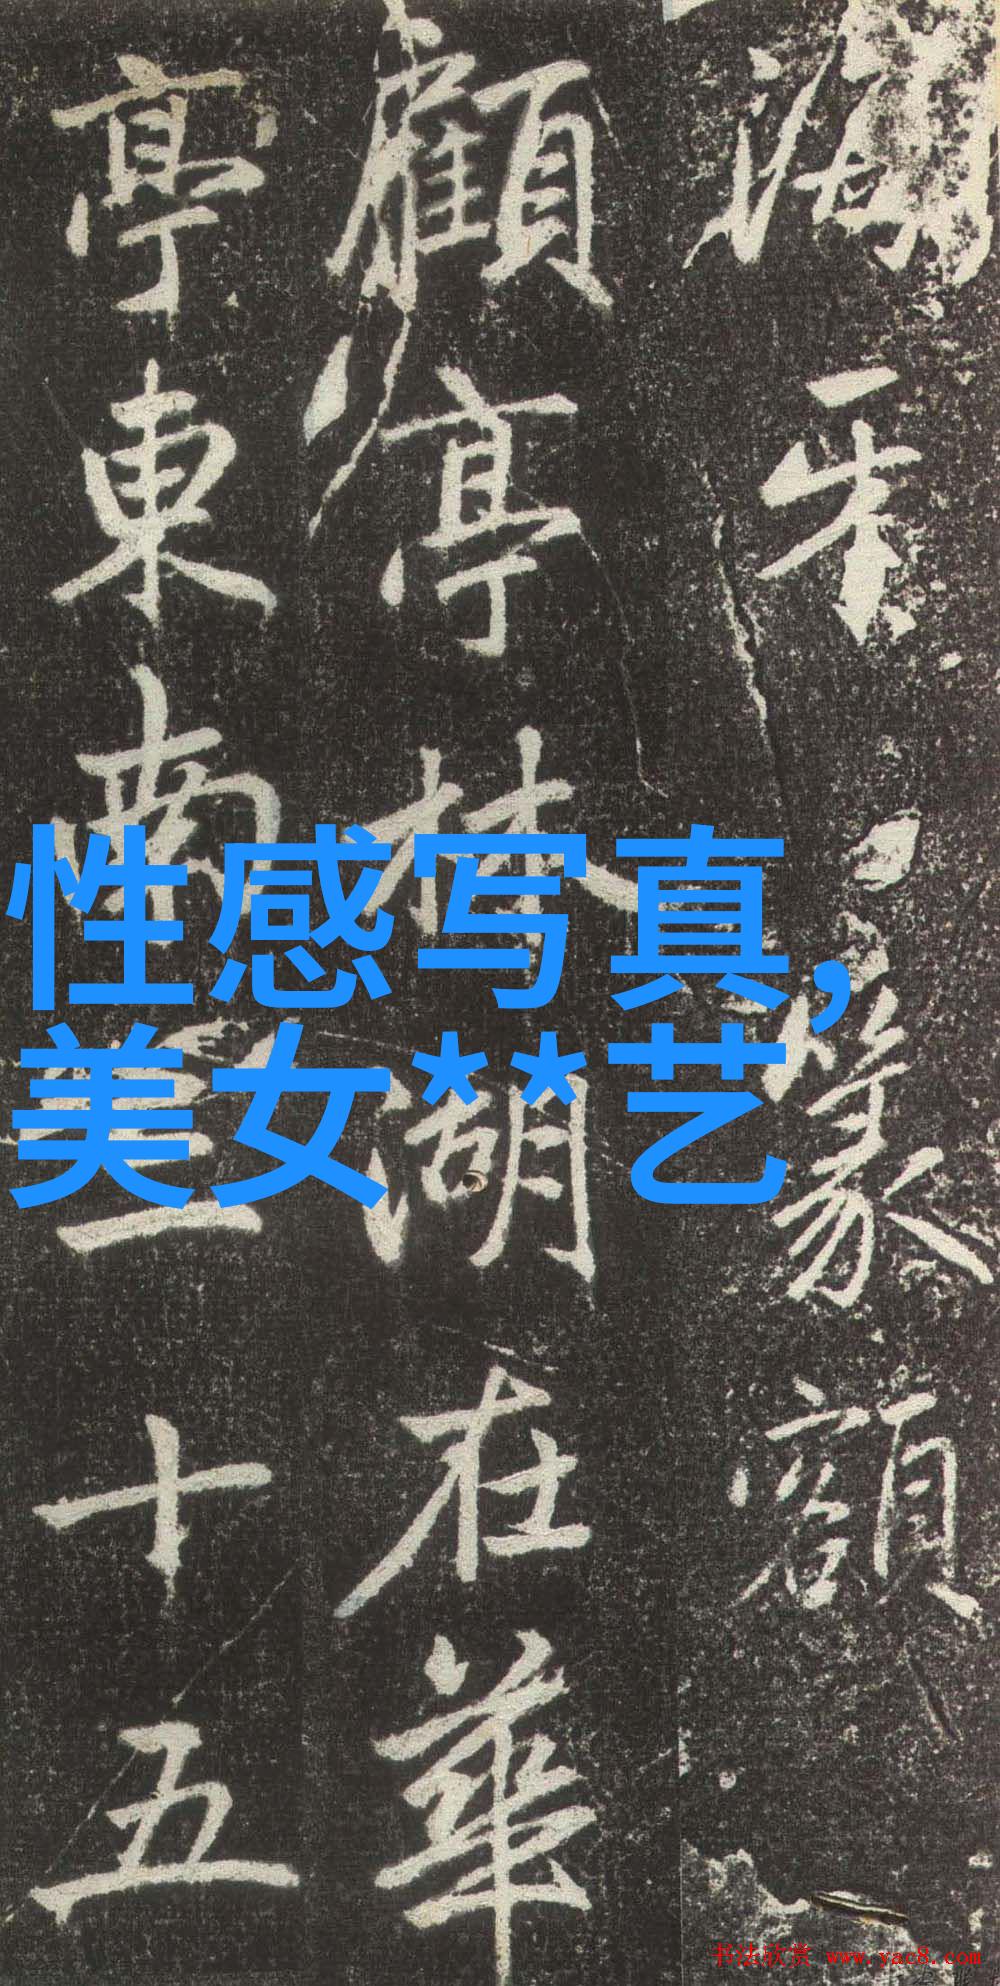 篆額
顧亭林湖在華
亭東南三十五
性感写真,
美女**艺
书法欣赏 www.yac8.com